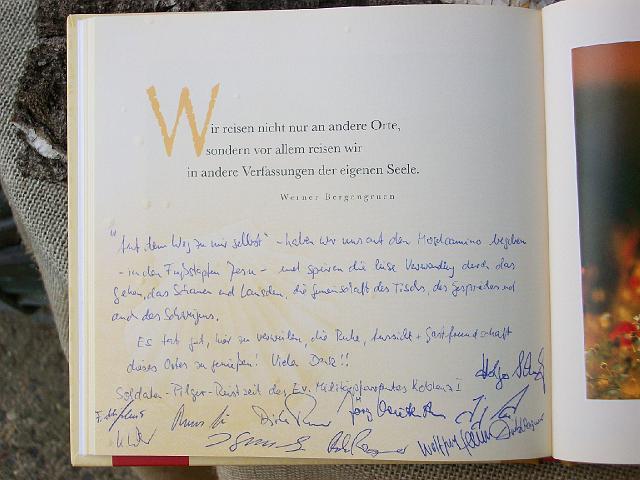 Wir reisen nicht nur an andere Orte,
sondern vor allem reisen wir
in andere Verfassungen der eigenen Seele.
Werner Bergengruen
"Auf dem Weg zu mir selbst" - haben wir uns auf den Moselcamino begeben
- in den Fußstapfen Jesu - und spüren die leise Verwandlung durch das
Gehen, das Schauen und Lauschen, die Gemeinschaft des Tischs, des Gespräches und
auch des Schweigens.
Es tat gut, hier zu verweilen, die Ruhe, Aussicht + Gastfreundschaft
dieses Ortes zu genießen! Viela Dank!!
Soldaten-Pilger-Rüstzeit des Ev. Militärpfarramtes Koblenz I
Holger
Jörg
Wolfgang